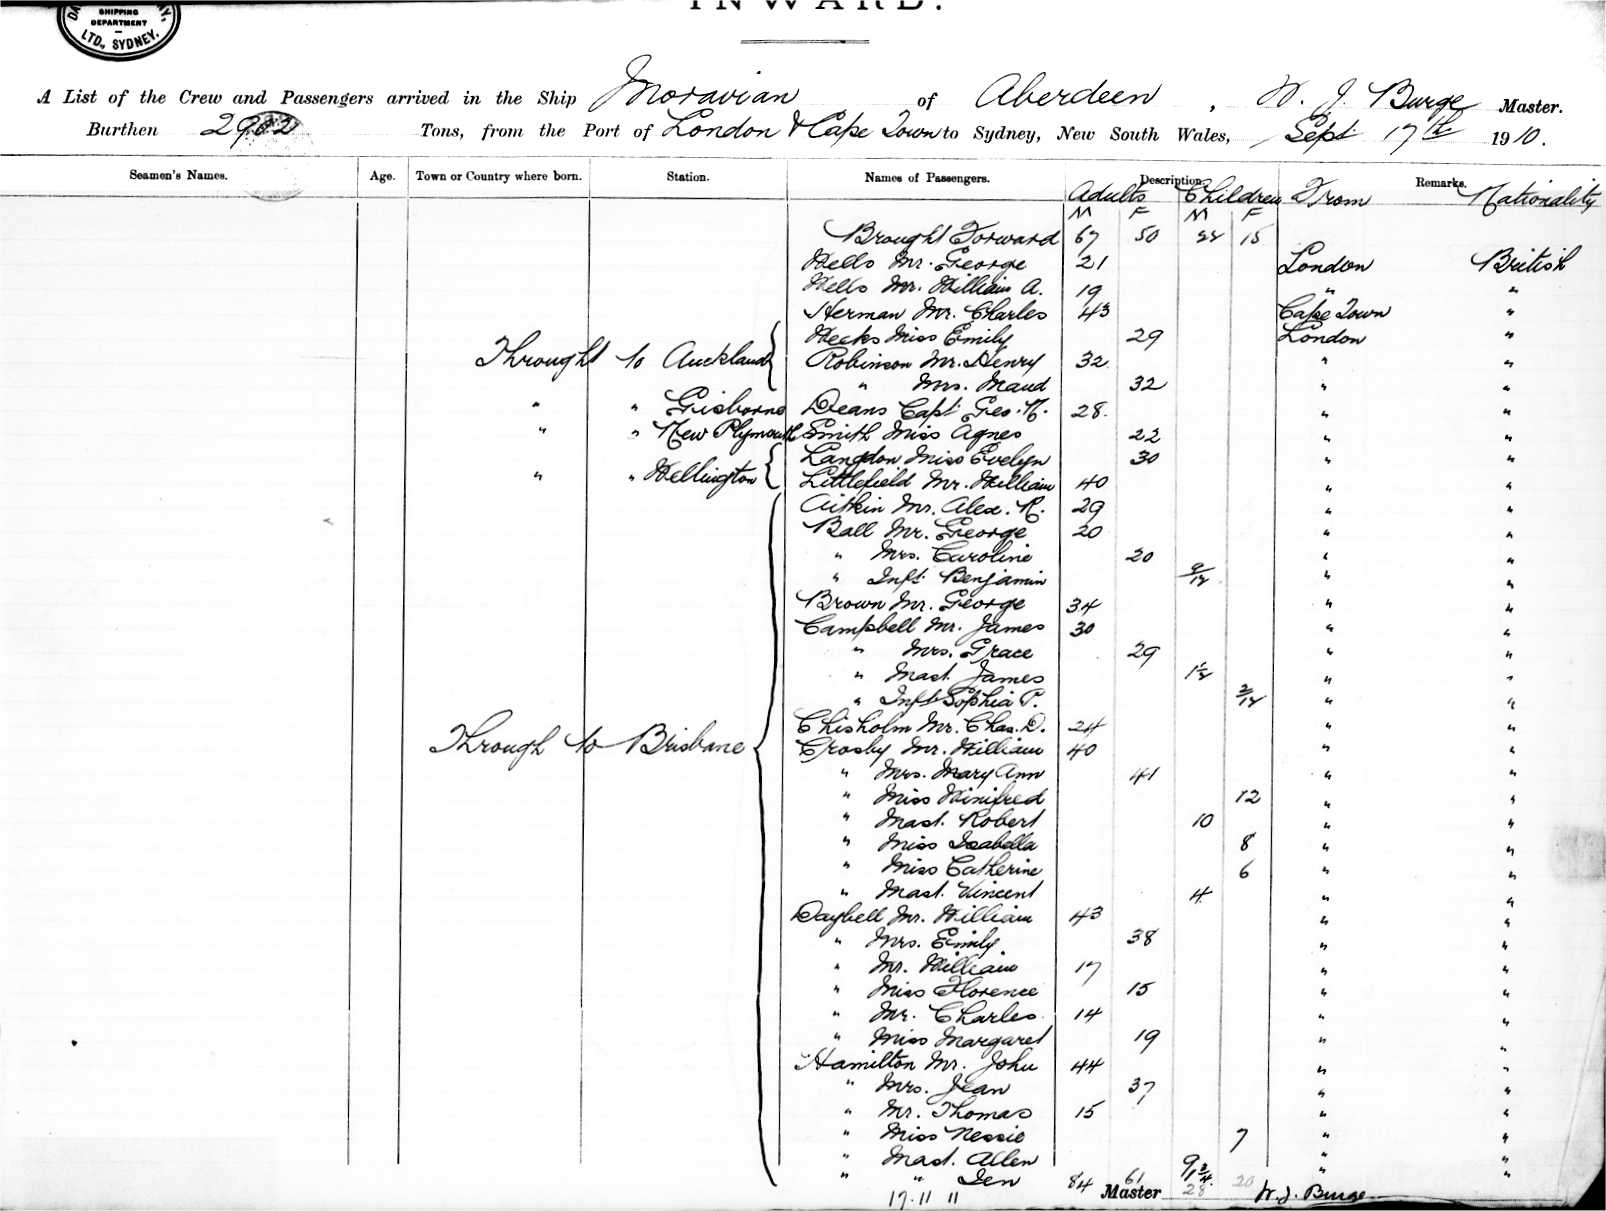 INWARD.
SHIPPING
DEPARTMENT
LTD., SYDNEY.
A List of the Crew and Passengers arrived in the Ship Moravian of Aberdeen, W. J. Burge Master.
Burthen Tons, from the Port of London & Cape Town to Sydney, New South Wales, Sept 17th 1910.
Seamen's Names. Age. Town or Country where born. Station. Names of Passengers. Description Remarks.
Adults Children From Nationality
M F M F
Brought Forward 67 50 22 15
Wells Mr. George 21 London British
Wells Mr. William A. 19 " "
Herman Mr. Charles 43 Cape Town "
Weeks Miss Emily 29 London "
Through to Auckland { Robinson Mr. Henry 32 " "
" Mrs. Maud 32 " "
" " Gisborne Deans Capt Geo. R. 28. " "
" " New Plymouth Smith Miss Agnes 22 " "
Langdon Miss Evelyn 30 " "
" " Wellington { Littlefield Mr. William 40 " "
Aitkin Mr. Alex. R. 29 " "
Ball Mr. George 20 " "
" Mrs. Caroline 20 " "
" Inft Benjamin 9/12 " "
Brown Mr. George 34 " "
Campbell Mr. James 30 " "
" Mrs. Grace 29 " "
" Mast. James 1½ " "
" Inft Sophia P. 3/12 " "
Chisholm Mr. Chas. D. 24 " "
Through to Brisbane { Crosby Mr. William 40 " "
" Mrs. Mary Ann 41 " "
" Miss Winifred 12 " "
" Mast. Robert 10 " "
" Miss Isabella 8 " "
" Miss Catherine 6 " "
" Mast. Vincent 4 " "
Daybell Mr. William 43 " "
" Mrs. Emily 38 " "
" Mr. William 17 " "
" Miss Florence 15 " "
" Mr. Charles 14 " "
" Miss Margaret 19 " "
Hamilton Mr. John 44 " "
" Mrs. Jean 37 " "
" Mr. Thomas 15 " "
" Miss Nessie 7 " "
" Mast. Allen 9 " "
" " Ien 1¾ " "
84 61 28 20
17 11 11 Master W. J. Burge